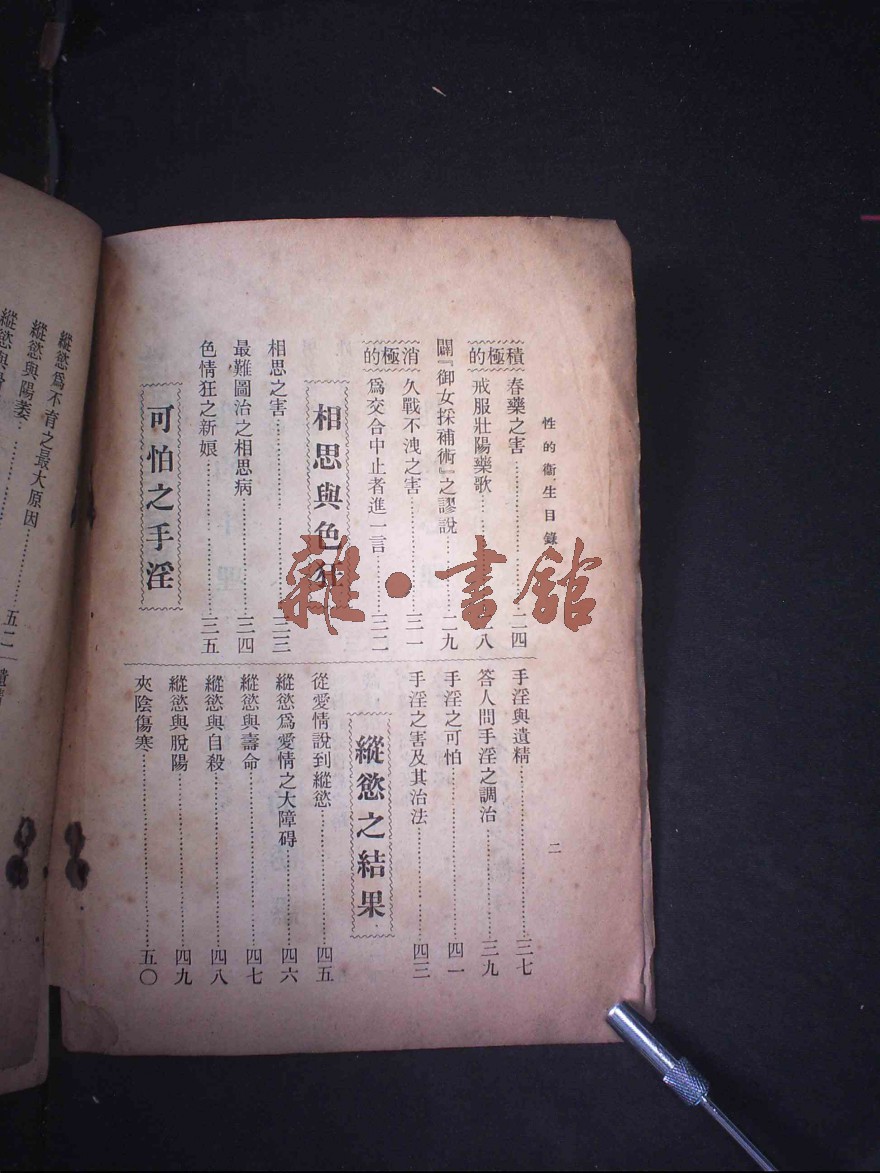 性的衞生目錄
積極的
春藥之害……二四
戒服壯陽藥歌……八
闢『御女採補術』之謬說……二九
消極的
久戰不洩之害……三一
爲交合中止者進一言……三二
相思與色狂
相思之害……三三
最難圖治之相思病……三四
色情狂之新娘……三五
可怕之手淫
手淫與遺精……三七
答人問手淫之調治……三九
手淫之可怕……四一
手淫之害及其治法……四三
縱慾之結果
從愛情說到縱慾……四五
縱慾爲愛情之大障碍……四六
縱慾與壽命……四七
縱慾與自殺……四八
縱慾與脫陽……四九
夾陰傷寒……五〇
二
縱慾爲不育之最大原因……五二
縱慾與陽萎
縱慾與
雜·書館